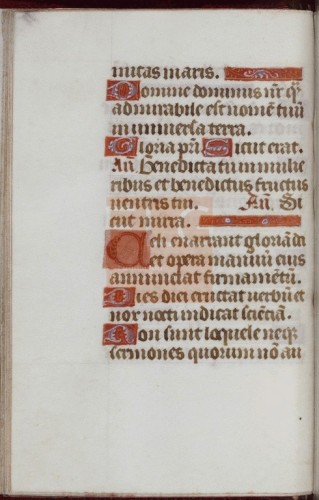 mitas maris.
Domine dominus nr̄ qͣ
admirabile est nomē tuū
in universa terra.
Gloria pr̄i Sicut erat.
An̄. Benedicta tu in mulie
ribus et benedictus fructus
ventris tui. An̄. Si
cut mirra.
Celi enarrant gloriā dei
et opera manuū eius
annunciat firmamētū.
Dies diei eructat verbū et
nox nocti indicat sciētiā.
Non sunt loquele neqꝫ
sermones quorum nō au